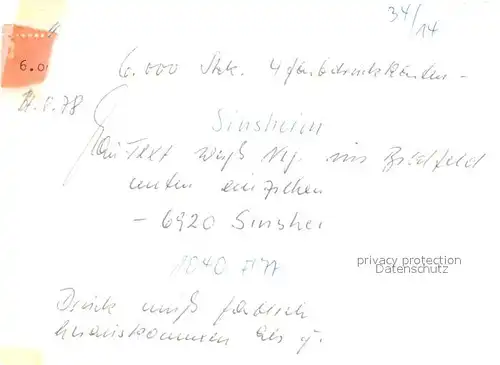 34/14
6.0
6.000 Stck. 4farbdruckkarten -
.78
Sinsheim
Text weiß neg. ins Bildfeld
unten einziehen
- 6920 Sinshei
1040
Druck muß farblich
herauskommen als
privacy protection
Datenschutz